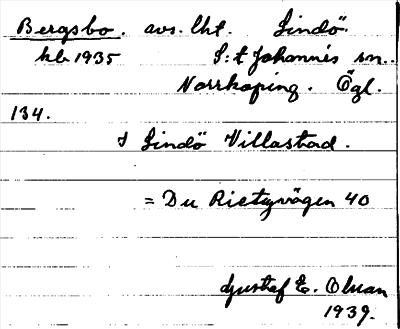 Bergsbo. avs. lht. Lindö.
kb 1935 S:t Johannis sn.
Norrköping. Ögl.
134.
I Lindö Villastad.
= Du Rietzvägen 40
Gustaf E. Olsson
1939.